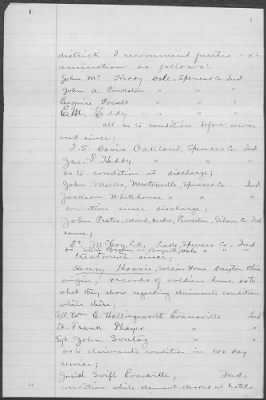 district I recommend further ex-
amination as follows:
John Mc Heddy Dale, Spencer Co. Ind
John A. Pinkston " " "
Esquire Powell " " "
E.M. Heddy " " "
all as to condition before service
and since;
T.S. Davis, Oakland, Spencer Co. Ind
Jas. P. Heddy " " "
as to condition at discharge;
John Meeks, Newtonville, Spencer Co. Ind
Jackson Whitehouse " " "
condition since discharge;
John Prates, colored, Princeton, Gibson Co. Ind
same;
Dr. McCoy, Dale, Spencer Co. Ind
treatment since;
Henry Soldiers Home Dayton Ohio
records of soldiers home as to
what they show regarding claimants condition
while there;
Wm C. Hollingsworth Evansville Ind
Lt. Frank Mayer " "
Sgt John Sontag " "
as to claimants condition in 100 day
service;
Josiah Swift Evansville, Ind.
condition while claimant at hotel